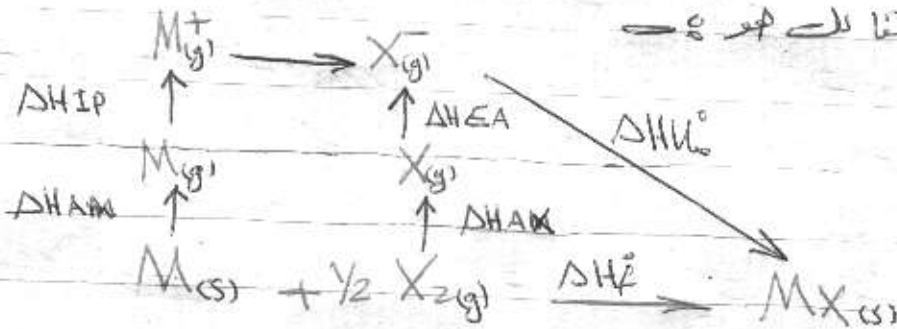 هو :-
M⁺(g) → X⁻(g)
ΔHIP ↑ ↑ ΔHEA ΔHU₀°
M(g) X(g)
ΔHAM ↑ ↑ ΔHAX
M(s) + 1/2 X2(g) ΔHf° → MX(s)